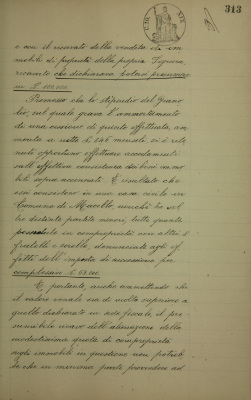 313
e con il ricavato della vendita di im-
mobili di proprietà della propria Signora,
ricavato che dichiarava potersi presumere
in £
Premesso che lo stipendio del Gran
sul quale grava l'ammortamento
di una cessione di quinto effettuata, am-
monta a nette £ mensili, si è rite-
nuto opportuno effettuare accertamenti
sull'effettiva consistenza dei beni immo-
bili sopra accennati. È risultato che
essi consistono in una casa civile in
Comune di nonché in sel-
te distinte partite minori, tutte quante
possedute in comproprietà con altri
fratelli e sorelle, denunciate agli ef-
fetti dell'imposta di successione per
complessive £
È pertanto, anche ammettendo che
il valore venale sia di molto superiore a
quello dichiarato in sede fiscale, il pre-
sumibile ricavo dell'alienazione della
modestissima quota di comproprietà
sugli immobili in questione non potreb-
be che in menoma parte provvedere ad